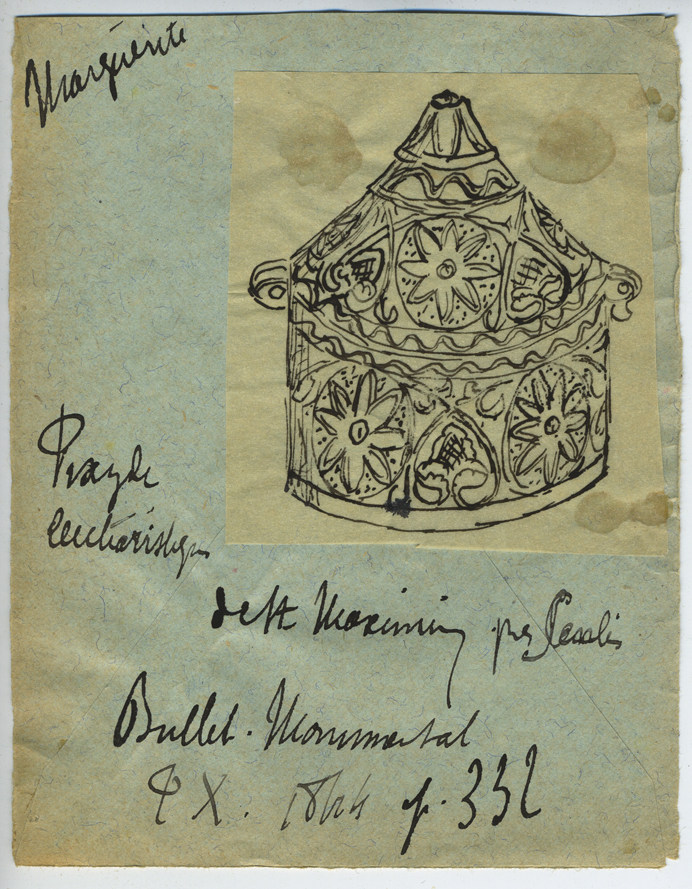 Marguerite
Pixyde
Eucharistique
de St Maximin près Senlis
Bullet. Monumental
X. 1844 p. 332